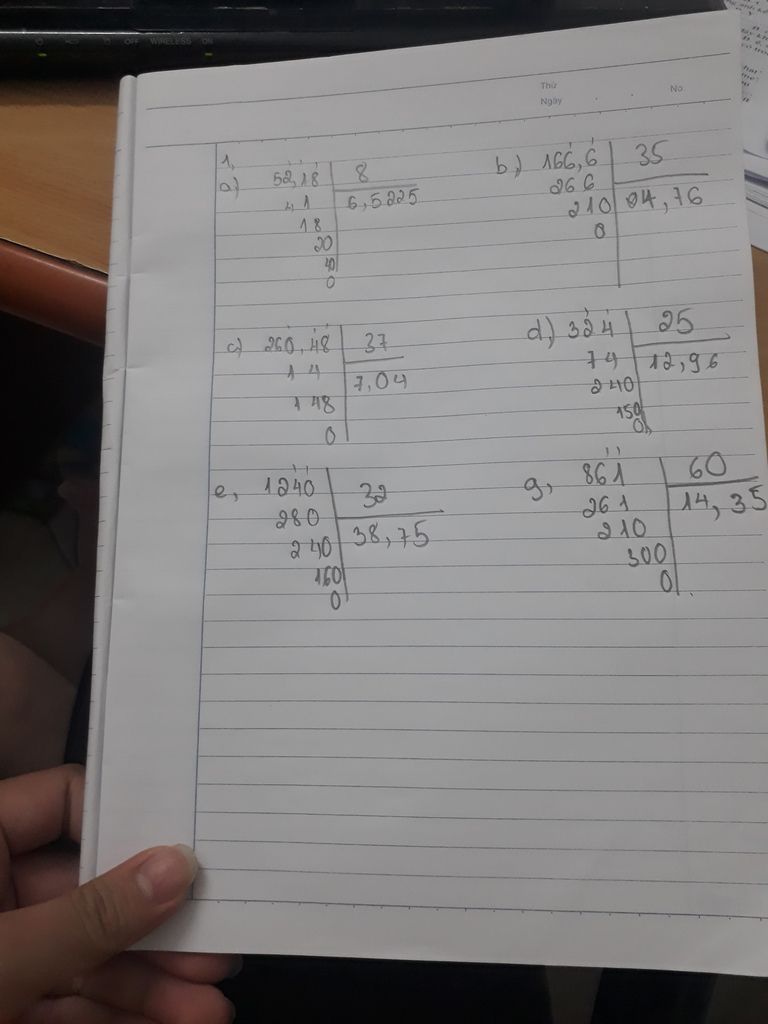 OFF WIRELESS ON
Thứ
Ngày No.
1,
a) 52,18 8
41 6,5225
18
20
40
0
b) 166,6 35
266 04,76
210
0
c) 260,48 37
14 7,04
148
0
d) 324 25
74 12,96
240
150
0
e, 1240 32
280 38,75
240
160
0
g, 861 60
261 14,35
210
300
0